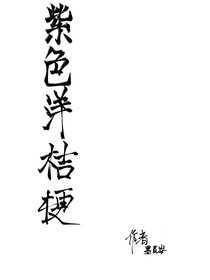 紫色洋桔梗
作者